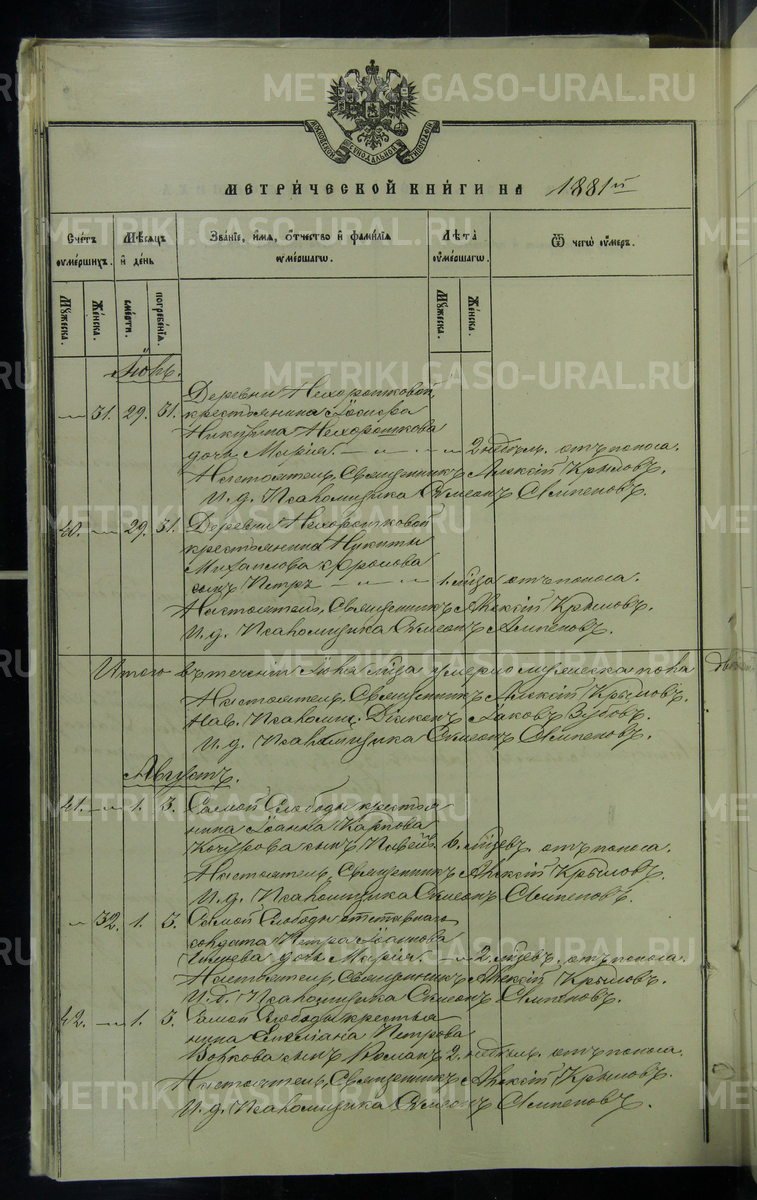 METRIKI.GASO-URAL.RU
МОСКОВСКОЙ СѴНОДАЛЬНОЙ ТИПОГРАФІИ
МЕТРИ́ЧЕСКОЙ КНИ́ГИ НА 1881й
Сче́тъ ᲂумершихъ. Мѣсяцъ и день Зва́нїе, и́мя, о́тчество и фами́лїя ᲂумершагѡ. Лѣта̀ ᲂумершагѡ. Ѿ чегѡ̀ ᲂумеръ.
Мꙋжеска. Женска. смерти. погребенїя. Мꙋжеска. Женска.
Іюль.
Деревни Нехорошковой,
— 31. 29. 31. крестьянина Іосифа
Никитина Нехорошкова
дочь Марія. — 2 недѣль. отъ поноса.
Настоятель, Священникъ Алексій Крыловъ.
И. д. Псаломщика Сѵмеонъ
40. — 29. 31. Деревни Нехорошковой
крестьянина Никиты
Михайлова
сынъ Петръ — 1. года отъ поноса.
Настоятель, Священникъ Алексій Крыловъ.
И. д. Псаломщика Сѵмеонъ
Итого въ теченіи Іюля умерло мужеска пола
Настоятель, Священникъ Алексій Крыловъ.
Псаломщ. Діаконъ Іаковъ Зубовъ.
И. д. Псаломщика Сѵмеонъ
Августъ.
41. — 1. 3. Самой Слободы крестья-
нина Іоанна Карпова
сынъ Павелъ 6. отъ поноса.
Настоятель, Священникъ Алексій Крыловъ.
И. д. Псаломщика Сѵмеонъ
— 32. 1. 3. Самой Слободы отставнаго
солдата Петра Іоаннова
дочь Марія. — 2. отъ поноса.
Настоятель, Священникъ Алексій Крыловъ.
И. д. Псаломщика Сѵмеонъ
42. — 1. 3. Самой Слободы крестья-
нина Емеліана Петрова
Волкова сынъ Романъ 2. недѣль. отъ поноса.
Настоятель, Священникъ Алексій Крыловъ.
И. д. Псаломщика Сѵмеонъ